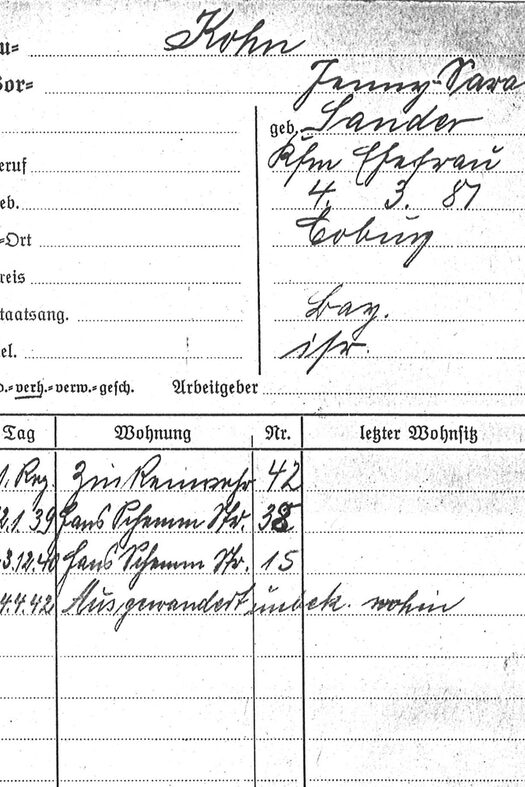 u= Kohn
Vor= Jenny-Sara
geb. Sander
eruf Kfm Ehefrau
eb. 4. 3. 87
=Ort Coburg
reis
taatsang. Bay.
el. isr.
.=verh.=verw.=gesch. Arbeitgeber
Tag Wohnung Nr. letzter Wohnsitz
1. Zinkenwehr 42
2.1.39 Hans Schemm Str. 38
3.12.40 Hans Schemm Str. 15
4.4.42 Ausgewandert unbek. wohin